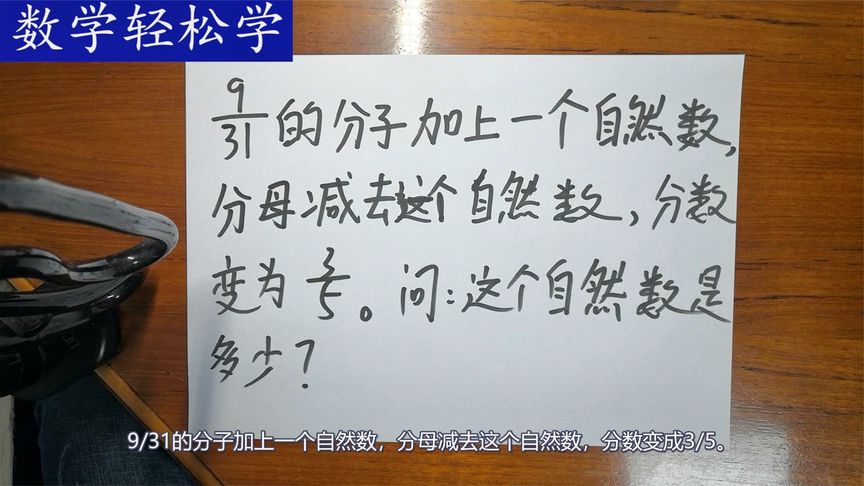 数学轻松学
9/31的分子加上一个自然数,
分母减去这个自然数,分数
变为3/5。问:这个自然数是
多少?
9/31的分子加上一个自然数，分母减去这个自然数，分数变成3/5。